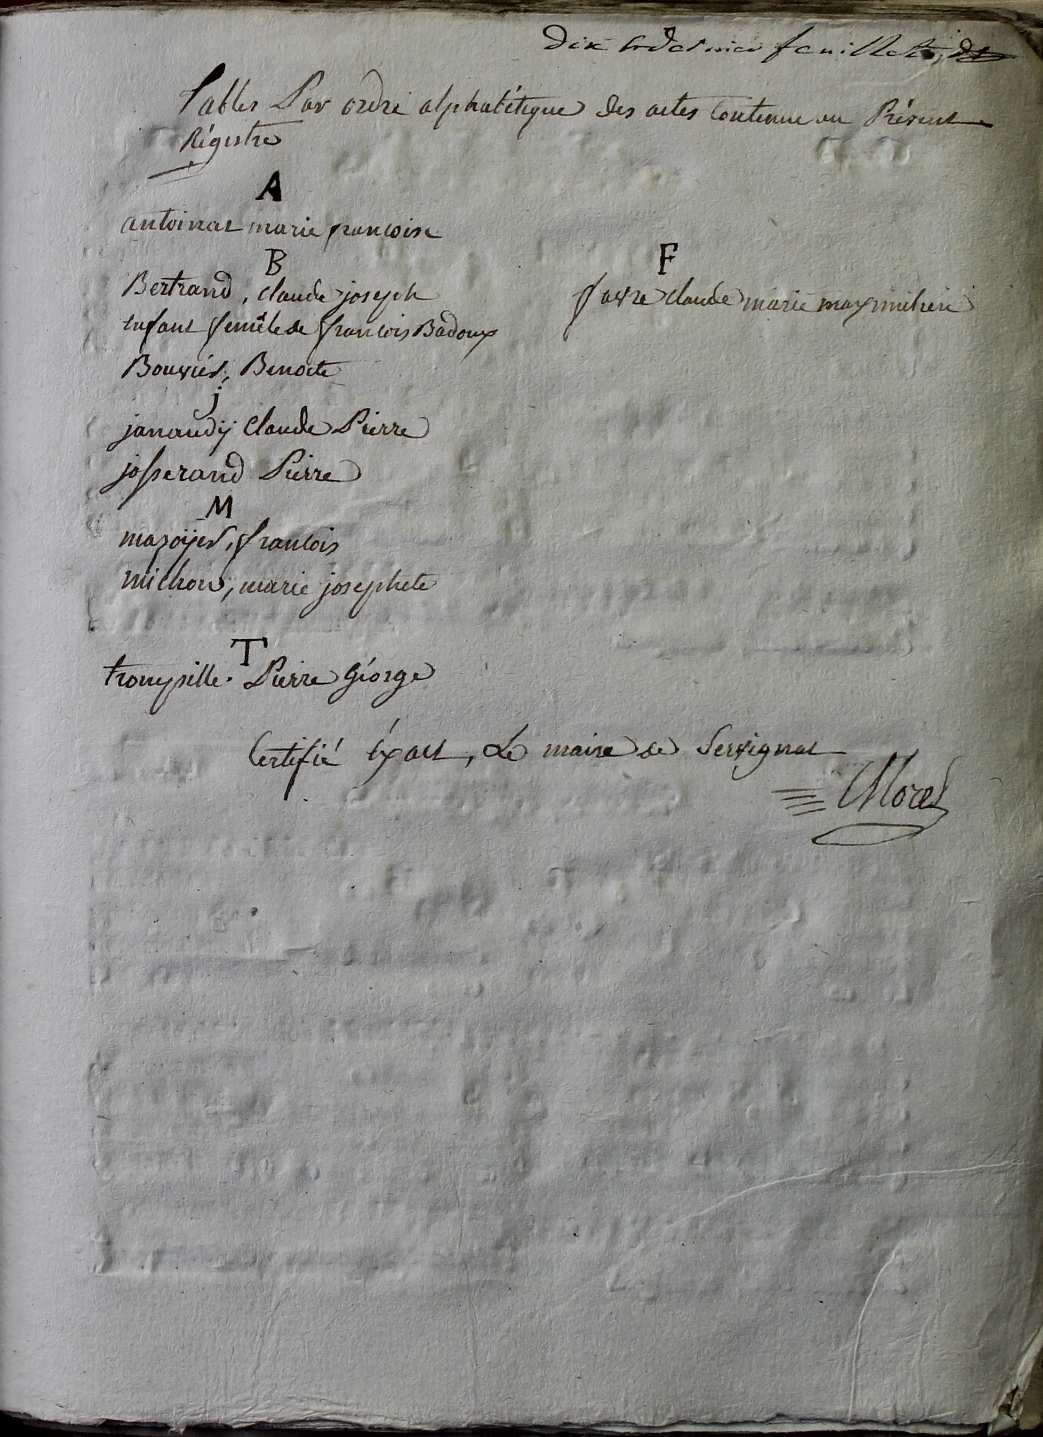 Dix et dernier feuillet
Tables Par ordre alphabétique des actes Contenue au Présent
Régistre
A
antoinat marie francoise
B
Bertrand, Claude joseph
Enfant femêle de francois Badoux
Bouvier, Benoite
j
janaudÿ Claude Pierre
josserand Pierre
M
mazoÿer, francois
michon, marie josephete
T
trompille. Pierre Géorge
F
favre claude marie maxymiliene
Certifié Éxact, Le maire de Servignat
Morel